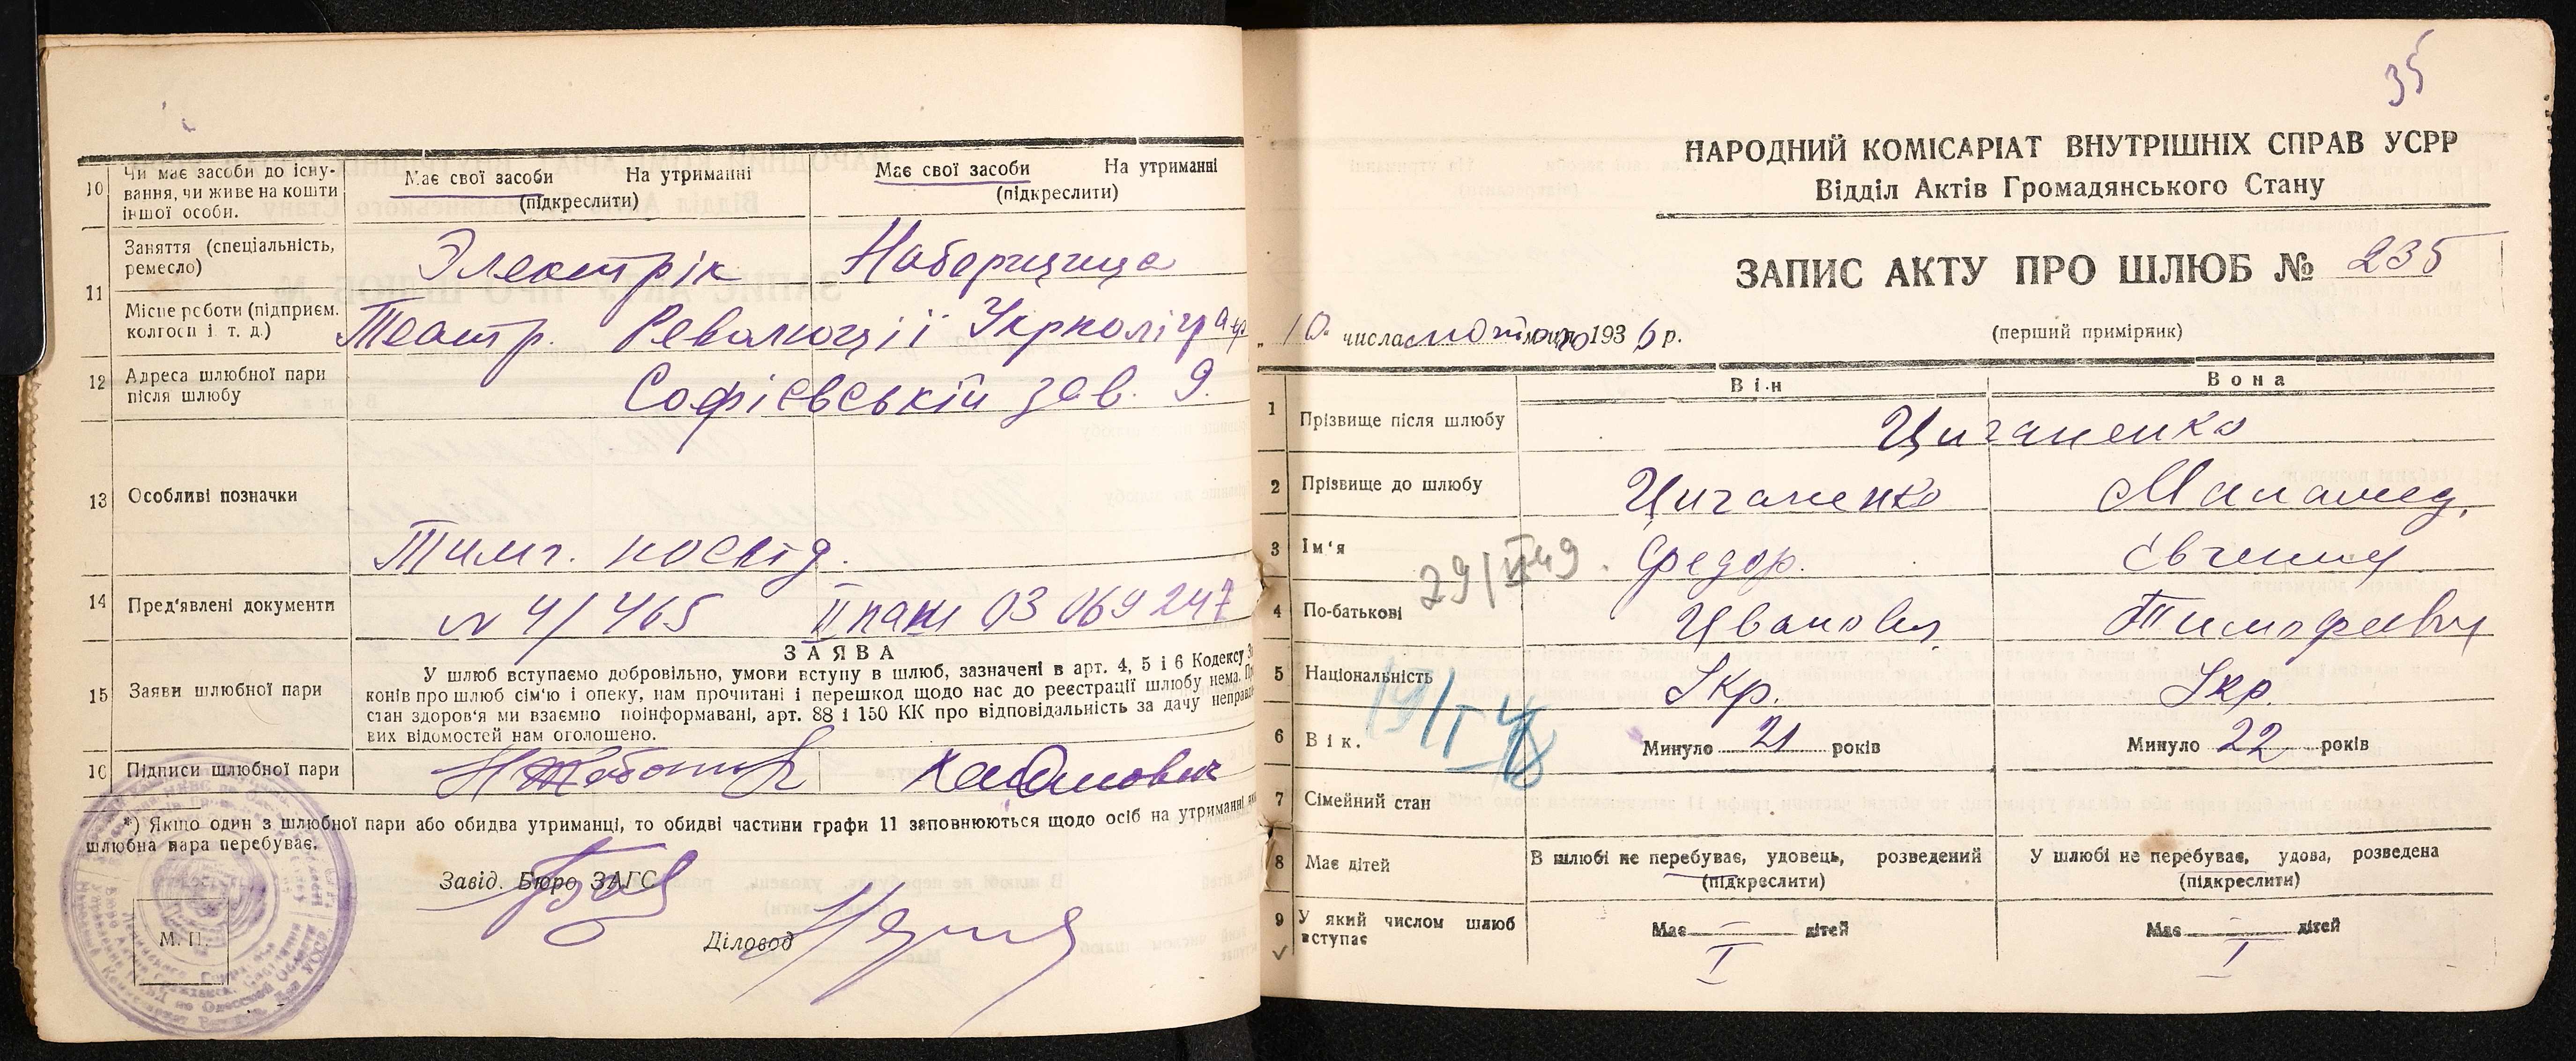 10 Чи має засоби до існу-
вання, чи живе на кошти
іншої особи.
Має свої засоби На утриманні
(підкреслити)
Має свої засоби На утриманні
(підкреслити)
11 Заняття (спеціальність,
ремесло)
Электрік Наборщица
Місце роботи (підприєм.
колгосп і т. д.)
Театр. Революціі Укрполіграф
12 Адреса шлюбної пари
після шлюбу
Софієвській зав. 9.
13 Особливі позначки
Тимч. посвід.
14 Пред'явлені документи
№ 4/465 II паш 03 069247
ЗАЯВА
15 Заяви шлюбної пари
У шлюб вступаємо добровільно, умови вступу в шлюб, зазначені в арт. 4, 5 і 6 Кодексу За
конів про шлюб сім'ю і опеку, нам прочитані і перешкод щодо нас до реєстрації шлюбу нема. Про
стан здоров'я ми взаємно поінформавані, арт. 88 і 150 КК про відповідальність за дачу неправди
вих відомостей нам оголошено.
16 Підписи шлюбної пари
*) Якщо один з шлюбної пари або обидва утриманці, то обидві частини графи 11 заповнюються щодо осіб на утриманні
шлюбна пара перебуває.
Завід. Бюро ЗАГС
Діловод
М. П.
35
НАРОДНИЙ КОМІСАРІАТ ВНУТРІШНІХ СПРАВ УСРР
Відділ Актів Громадянського Стану
ЗАПИС АКТУ ПРО ШЛЮБ № 235
„10" числа лютого місяця 1936 р.
(перший примірник)
Він Вона
1 Прізвище після шлюбу Циганенко
2 Прізвище до шлюбу Циганенко Маламед.
3 Ім'я Федор. Євгения
29/VI 49
4 По-батькові Иванович Тимофеевич
5 Національність Укр. Укр.
19/I 48
6 Вік. Минуло 21 років Минуло 22 років
7 Сімейний стан
8 Має дітей
В шлюбі не перебуває, удовець, розведений
(підкреслити)
У шлюбі не перебуває, удова, розведена
(підкреслити)
9 У який числом шлюб
вступає
Має — дітей Має — дітей
I I